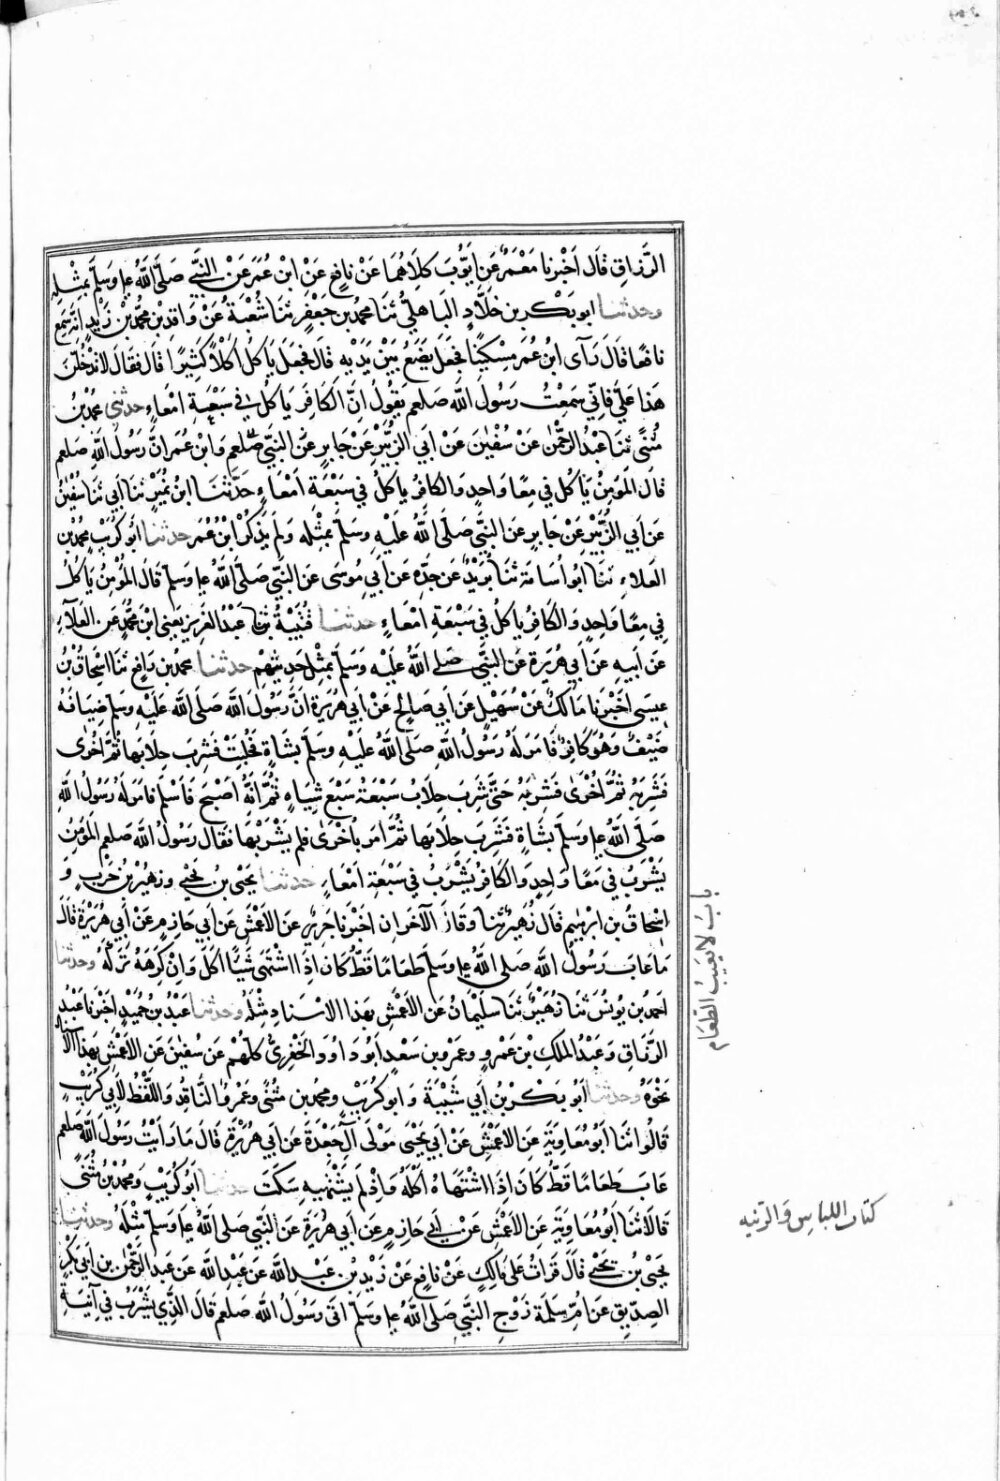 الرزاق قال اخبرنا معمر عن ايوب كلاهما عن نافع عن ابن عمر عن النبي صلى الله عليه وسلم بمثله
وحدثنا ابو بكر بن خلاد الباهلي ثنا محمد بن جعفر ثنا شعبة عن واقد بن محمد بن زيد انه سمع
نافعا قال رآى ابن عمر مسكينا فجعل يضع بين يديه قال فجعل ياكل اكلا كثيرا قال فقال لا تدخلن
هذا علي فاني سمعت رسول الله صلعم يقول ان الكافر ياكل في سبعة امعاء حدثني محمد بن
مثنى ثنا عبد الرحمن عن سفين عن ابي الزبير عن جابر عن النبي صلعم وابن عمر ان رسول الله صلعم
قال المومن ياكل في معا واحد والكافر ياكل في سبعة امعاء حدثنا ابن نمير ثنا ابي ثنا سفين
عن ابي الزبير عن جابر عن النبي صلى الله عليه وسلم بمثله ولم يذكر ابن عمر حدثنا ابو كريب محمد بن
العلاء ثنا ابو أسامة ثنا بريد عن جده عن ابي موسى عن النبي صلى الله عليه وسلم قال المؤمن ياكل
في معا واحد والكافر ياكل في سبعة امعاء حدثنا قتيبة ثنا عبد العزيز يعني ابن محمد عن العلآء
عن ابيه عن ابي هريرة عن النبي صلى الله عليه وسلم بمثل حديثهم حدثنا محمد بن رافع ثنا اسحاق بن
عيسى اخبرنا مالك عن سهيل عن ابي صالح عن ابي هريرة ان رسول الله صلى الله عليه وسلم ضيافه
ضيف وهو كافر فامر له رسول الله صلى الله عليه وسلم بشاة فحلبت فشرب حلابها ثم اخرى
فشربه ثم اخرى فشربه حتى شرب حلاب سبعة سبع شياه ثم انه اصبح فاسلم فامر له رسول الله
صلى الله عليه وسلم بشاة فشرب حلابها ثم امر باخرى فلم يشربها فقال رسول الله صلعم المؤمن
يشرب في معا واحد والكافر يشرب في سبعة امعاء حدثنا يحيى بن يحيى وزهير بن حرب و
اسحاق بن ابرهيم قال زهير ثنا وقال الآخران اخبرنا جرير عن الاعمش عن ابي حازم عن أبي هريرة قال
ما عاب رسول الله صلى الله عليه وسلم طعاما قط كان اذا اشتهى شيا اكل وان كرهه تركه وحدثنا
احمد بن يونس ثنا زهير ثنا سليمان عن الاعمش بهذا الاسناد مثله وحدثنا عبد بن حميد اخبرنا عبد
الرزاق وعبد الملك بن عمرو وعمرو بن سعد ابو داود الحفري كلهم عن سفين عن الاعمش بهذا الاسناد
نحوه وحدثنا ابو بكر بن ابي شيبة وابو كريب ومحمد بن مثنى وعمرو الناقد واللفظ لابي كريب
قالوا ثنا ابو معاوية عن الاعمش عن ابي يحيى مولى آل جعدة عن ابي هريرة قال ما رايت رسول الله صلعم
عاب طعاما قط كان اذا اشتهاه اكله واذ لم يشتهيه سكت حدثنا ابو كريب ومحمد بن مثنى
قالا ثنا ابو معاوية عن الاعمش عن ابي حازم عن ابي هريرة عن النبي صلى الله عليه وسلم مثله وحدثنا
يحيى بن يحيى قال قرات على مالك عن نافع عن زيد بن عبد الله عن عبد الله عن عبد الرحمن بن ابي بكر
الصديق عن ام سلمة زوج النبي صلى الله عليه وسلم ان رسول الله صلعم قال الذي يشرب في آنية
باب لا يعيب الطعام
كتاب اللباس والزينه